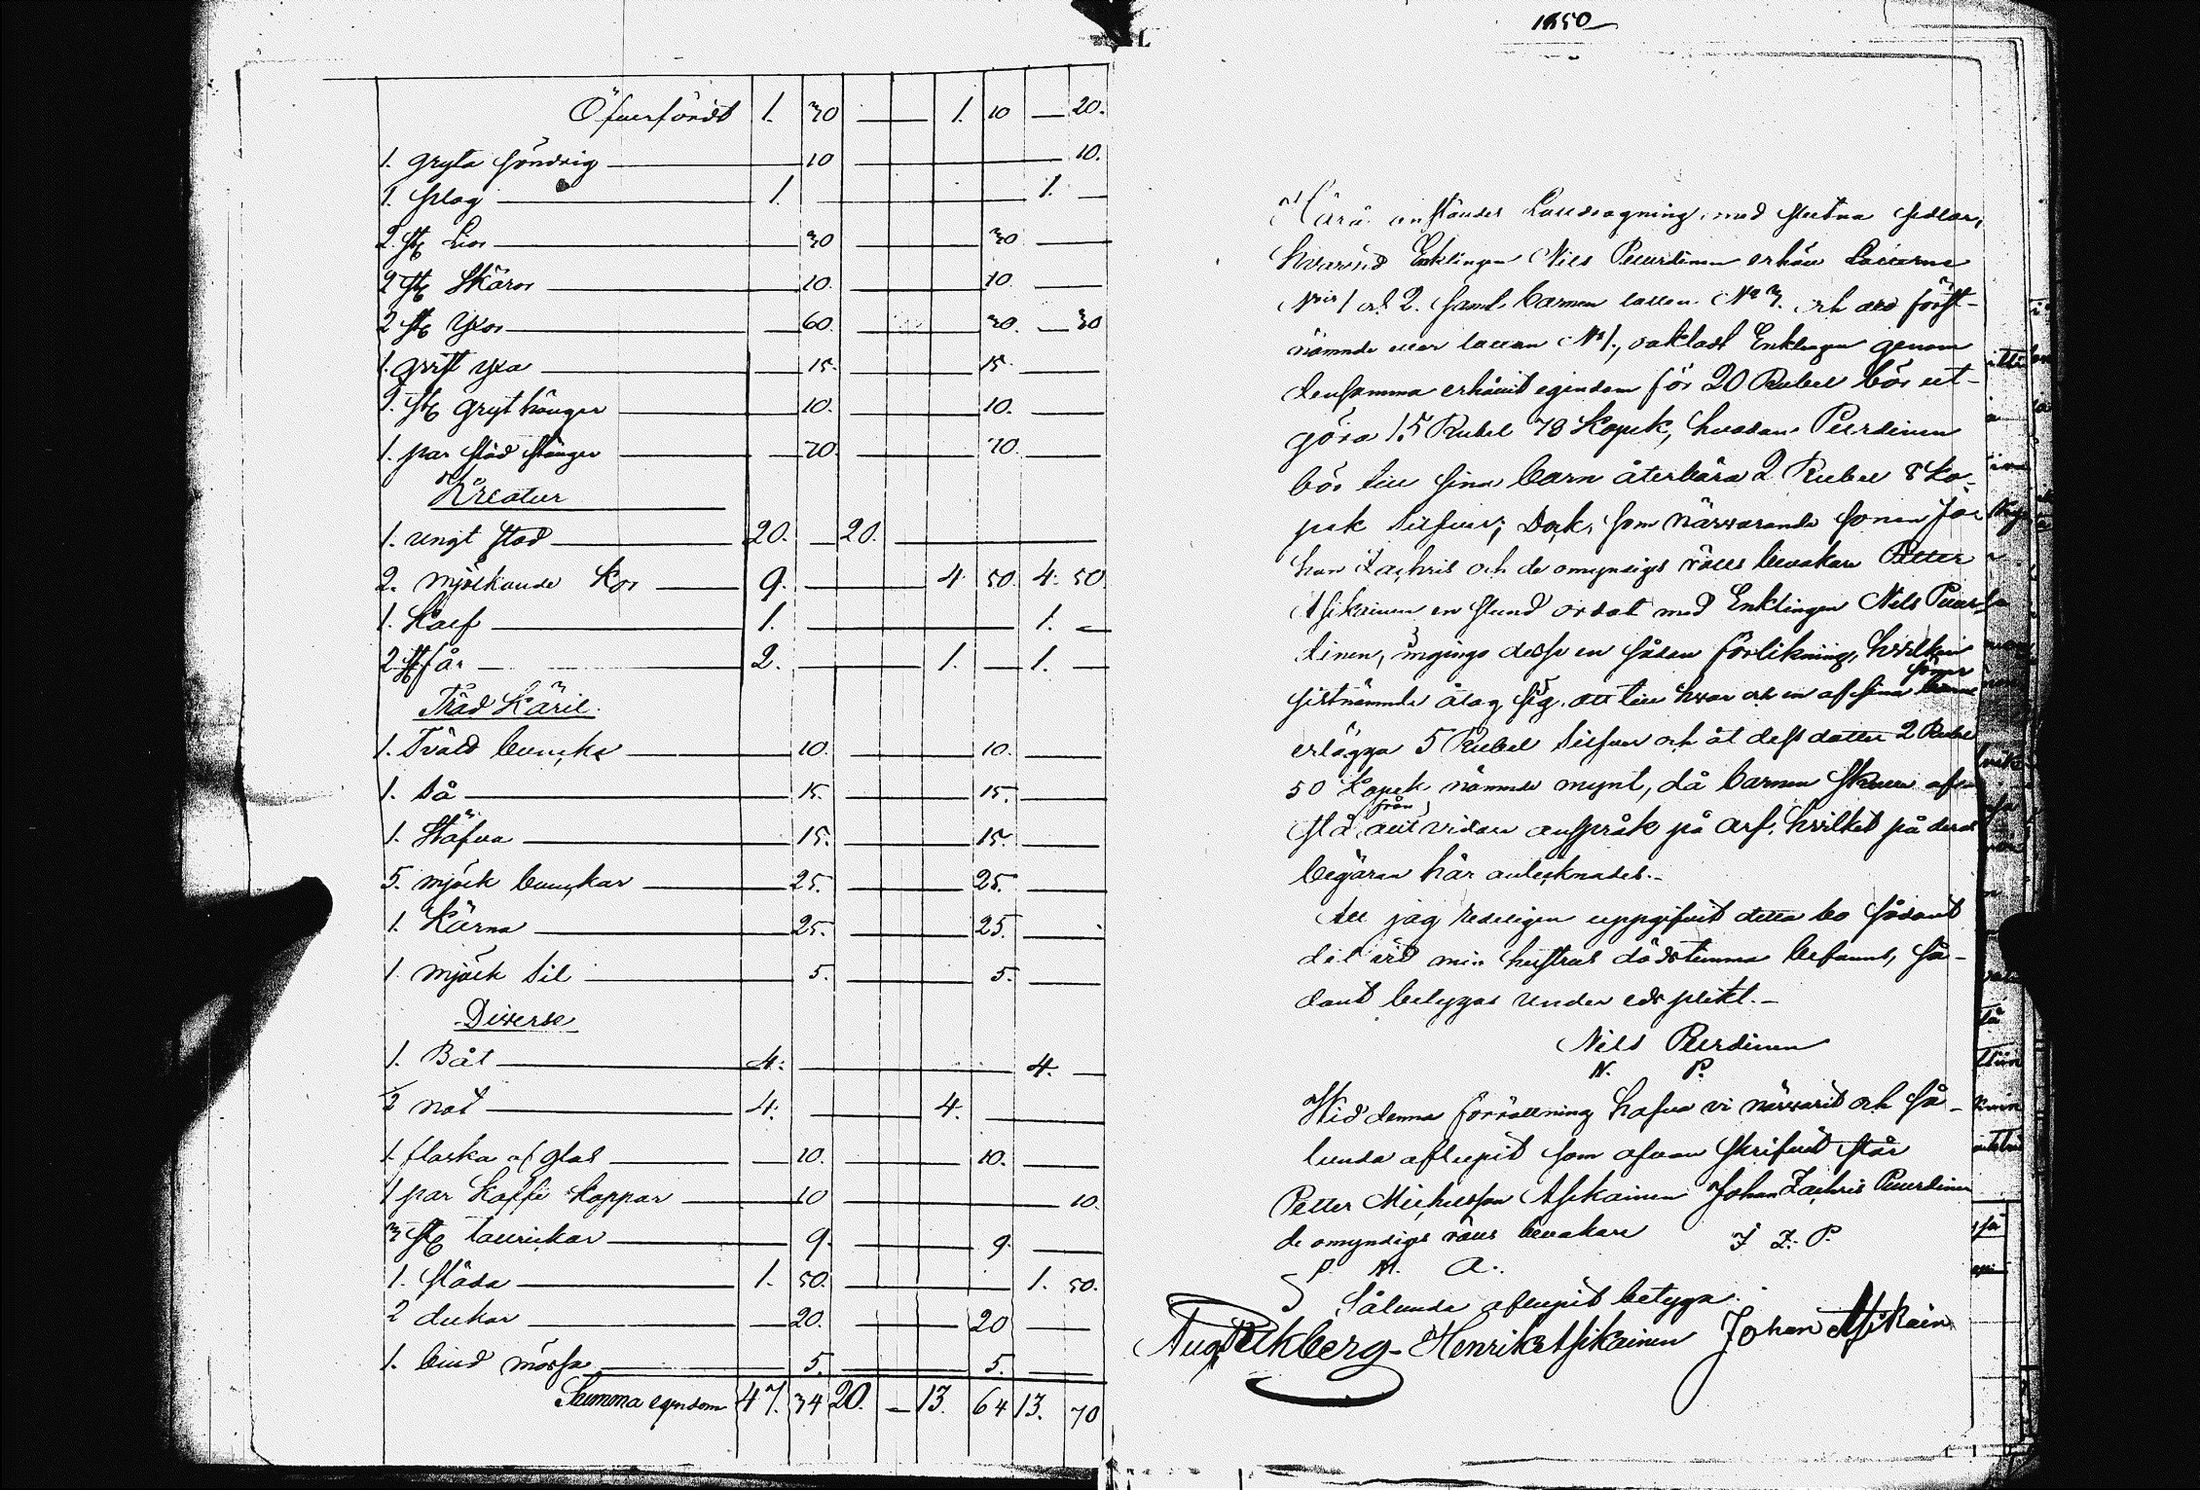 1850
Öfverfördt 1. 30 — 1. 10 — 20.
1. gryta söndrig — 10 — 10.
1. plog — 1. — 1. —
2 st Lior — 30 — 30 —
2 st Skäror — 10. — 10. —
2 st Yxor — 60. — 30. — 30
1. yxa — 15. — 15. —
2. st grythänger — 10. — 10. —
1. par stänger — 70. — 70. —
Kreatur
1. ungt stod — 20. — 20. —
2. mjölkande Kor — 9. — 4. 50. 4. 50
1. Kalf — 1. — 1. —
2 st får — 2. — 1. — 1. —
Träd Käril
1. buncke — 10. — 10. —
1. Så — 15. — 15. —
1. Stäfva — 15. — 15. —
5. mjölk bunckar — 25. — 25. —
1. Kärna — 25. — 25. —
1 mjölk Sil — 5. — 5. —
Diverse
1. Båt — 4. — 4. —
1/2 not — 4. — 4. —
1 flaska af glas — 10. — 10. —
1 par Kaffe Koppar — 10 — 10.
3 st tallrickar — 9. — 9. —
1. släda — 1. 50. — 1. 50.
2 dukar — 20. — 20 —
1. bind mössa — 5. — 5. —
Summa egendom 47. 34 20. — 13. 64 13. 70
Härå anstäldes Lottdragning, med slutna sedlar,
hvarvid Enklingen Nils Puurdinen erhöll Lotterne
N:ris 1 och 2. samt barnen lotten N:o 3. och som först-
nämnde lotten N:o 1., Enklingen genom
densamma erhållit egendom för 20 Rubel bör ut-
göra 15 Rubel 78 Kopek, hvadan Puurdinen
bör till sina barn återbära 2 Rubel 8 Ko-
pek Silfver; Dock, som närvarande sonen Jo-
han Zachris och de omyndigas rätts bevakare Petter
Asikainen en stund ordat med Enklingen Nils Puur-
dinen, ingingo desse en sådan förlikning, hvilken
sistnämnde åtog sig, att till hvar och en af sina söner
erlägga 5 Rubel Silfver och åt dess dotter 2 Rubel
50 Kopek nämnde mynt, då barnen skulle af-
stå från all vidare anspråk på arf, hvilket på deras
begäran här antecknades.—
Att jag redeligen uppgifvit detta bo sådant
det vid min hustrus dödstimma befanns, så-
dant betygas under eds plikt.—
Nils Puurdinen
N. P.
Wid denna förrättning hafva vi närvarit och så-
lunda aflupit som ofvan skrifvit står
Petter Michelsson Asikainen Johan Zachris Puurdinen
de omyndigas rätts bevakare J Z. P.
P. M. A.
Sålunda aflupit betyga.
Aug Ekberg– Henrik Asikainen Johan Asikain